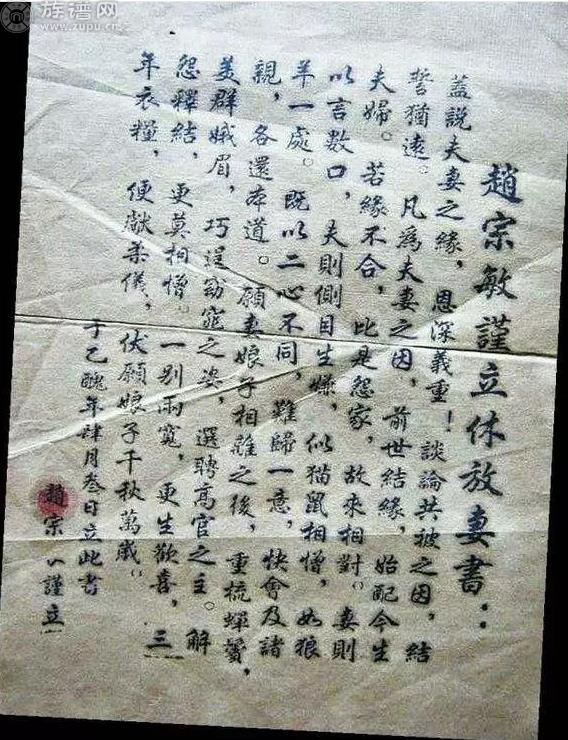 族谱网
www.zupu.cn
趙宗敏謹立休放妻書：
蓋説夫妻之緣，恩深義重！談論共被之因，結
誓猶遠。凡爲夫妻之因，前世結緣，始配今生
夫婦。若緣不合，比是怨家，故來相對。妻則
以言數口，夫則側目生嫌，似猫鼠相憎，如狼
羊一處。既以二心不同，難歸一意，快會及諸
親，各還本道。願妻娘子相離之後，重梳蟬鬢，
美群娥眉，巧逞窈窕之姿，選聘高官之主。解
怨釋結，更莫相憎。一别兩寬，更生歡喜，三
年衣糧，便獻柔儀，伏願娘子千秋萬歲。
于己醜年肆月叁日立此書
趙宗謹立